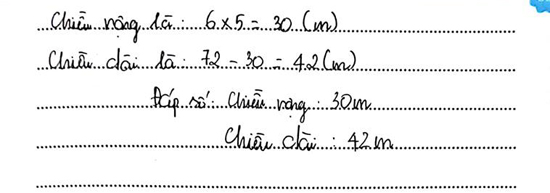 Chiều rộng là: 6 x 5 = 30 (m)
Chiều dài là: 72 - 30 = 42 (m)
Đáp số: Chiều rộng: 30m
Chiều dài: 42m